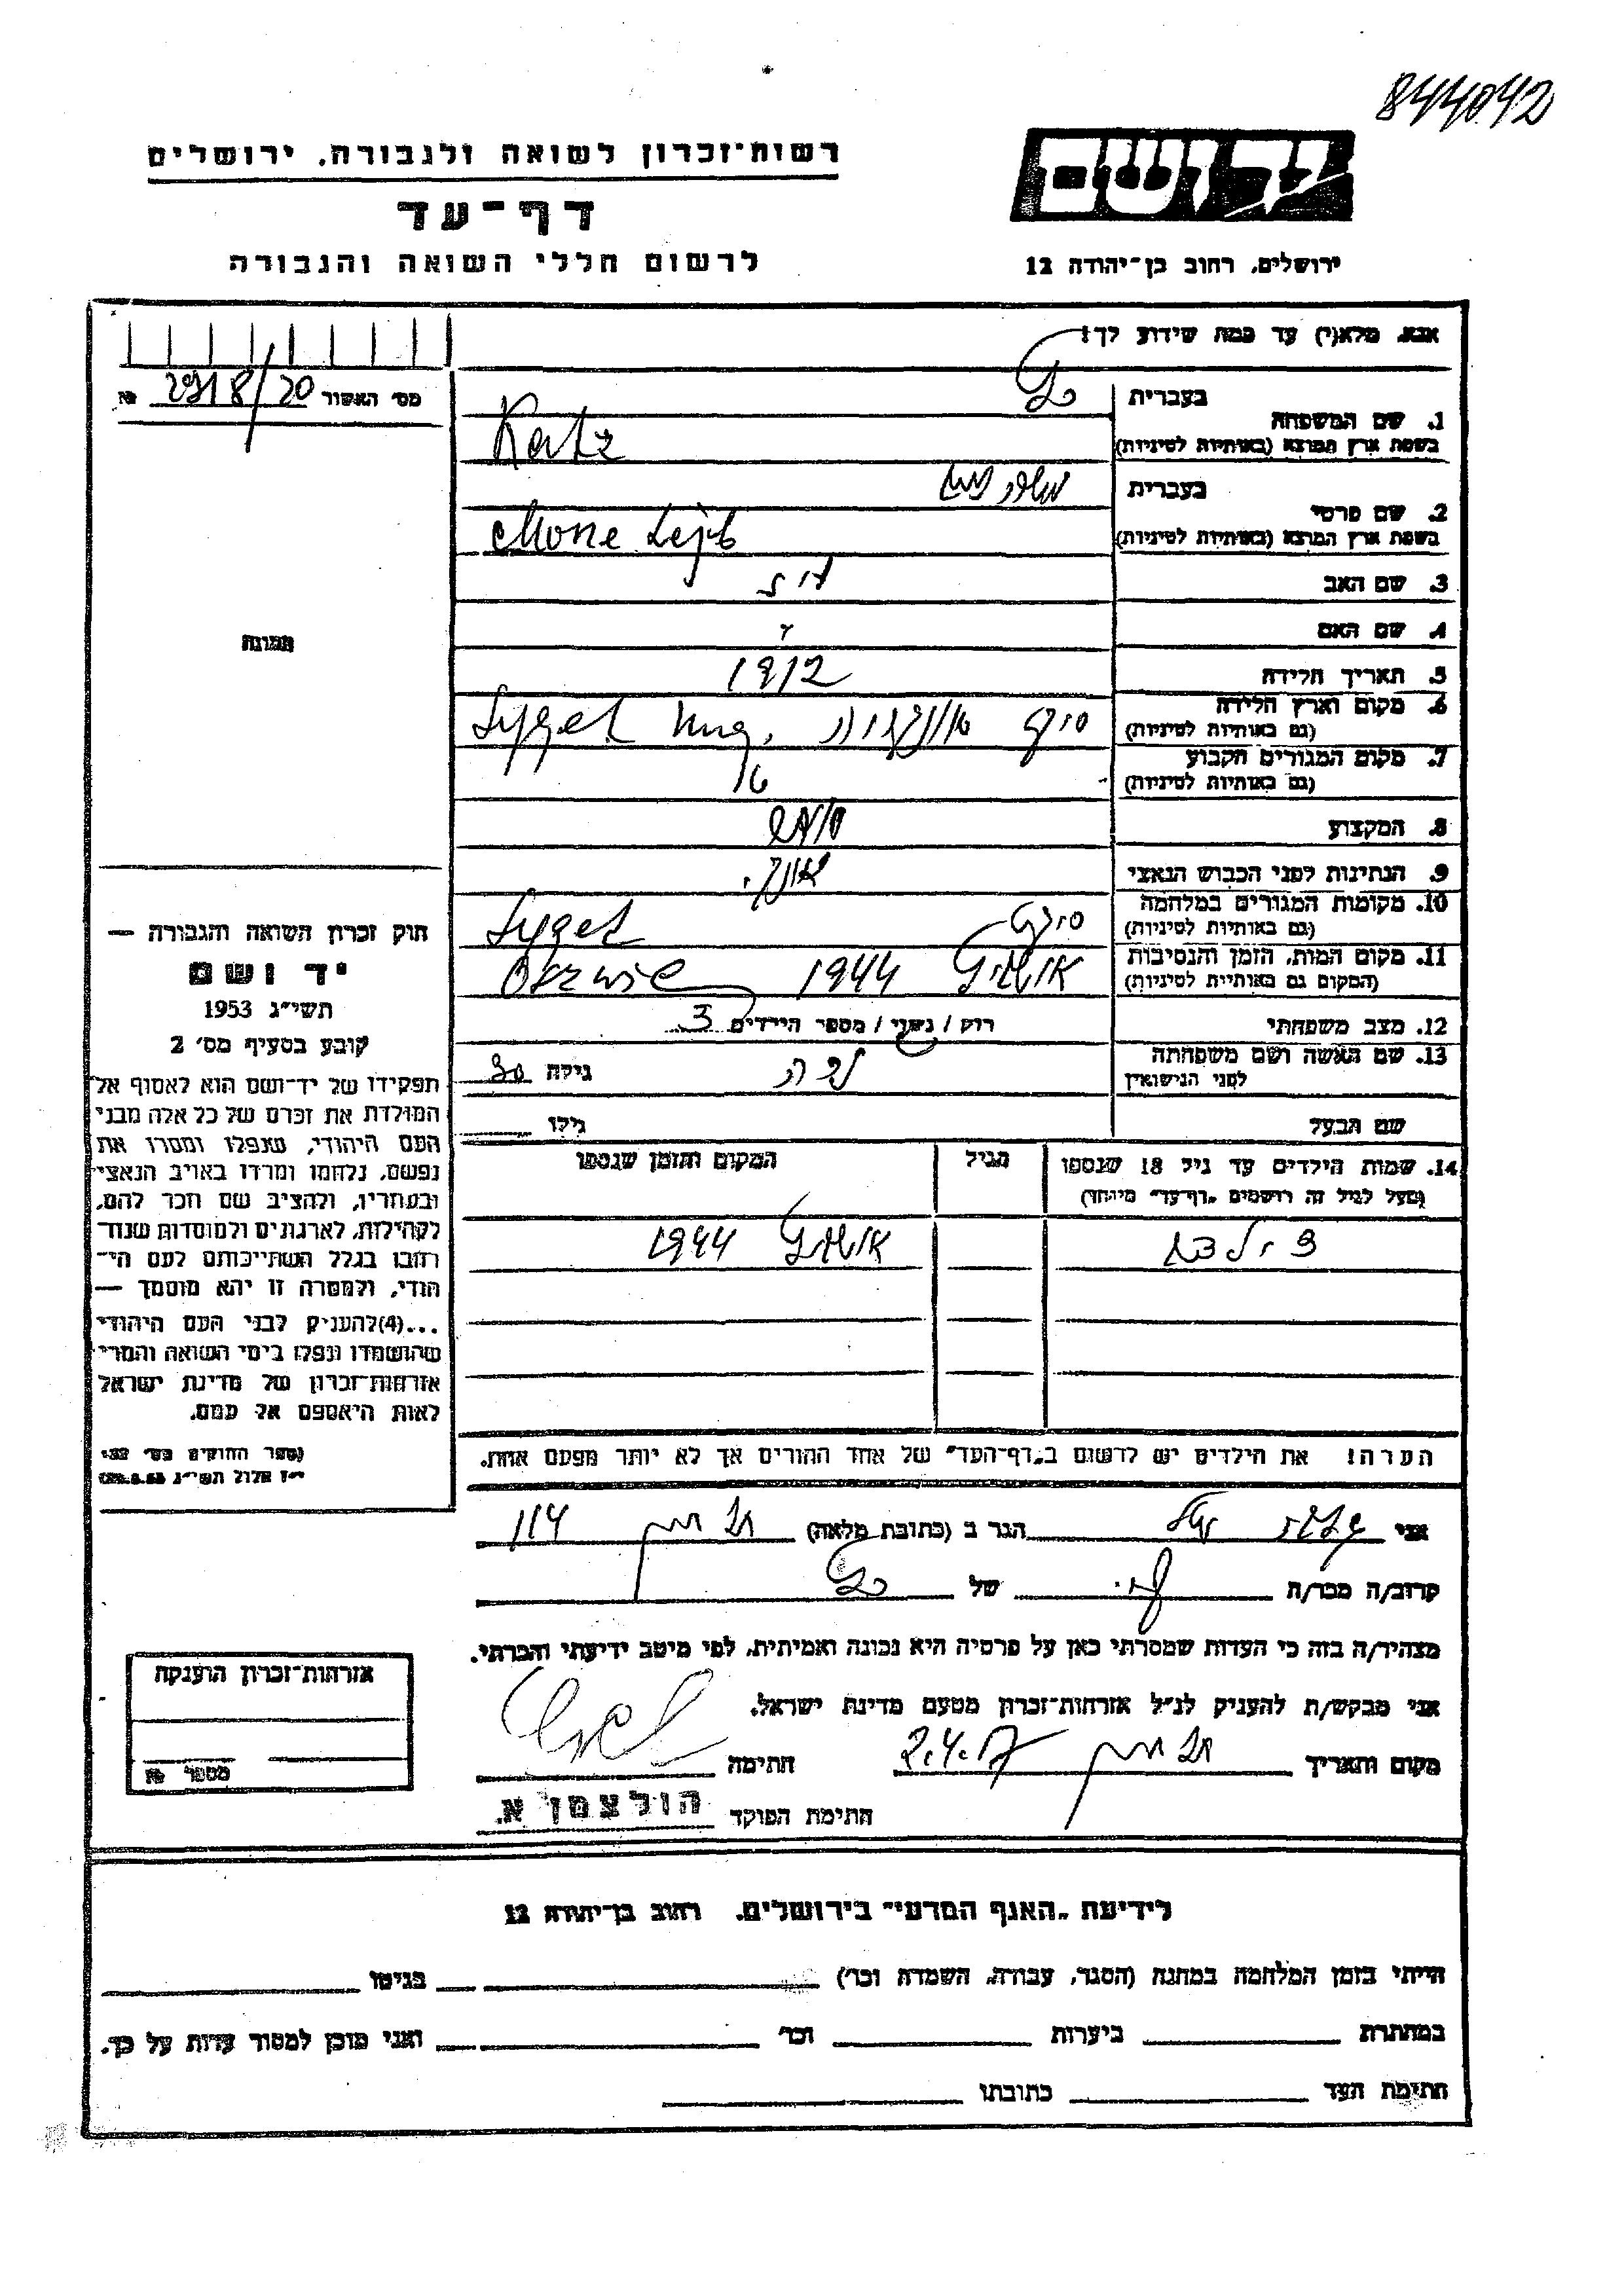 844042
רשות־זכרון לשואה ולגבורה. ירושלים
דף־עד
לרשום חללי השואה והגבורה
יד ושם
ירושלים, רחוב בן־יהודה 12
אנא, מלא(י) עד כמה שידוע לך!
מס׳ האשור 2918/20 №
תמונה
חוק זכרון השואה והגבורה —
יד ושם
תשי״ג 1953
קובע בסעיף מס׳ 2
תפקידו של יד־ושם הוא לאסוף אל
המולדת את זכרם של כל אלה מבני
העם היהודי, שנפלו ומסרו את
נפשם, נלחמו ומרדו באויב הנאצי
ובעוזריו, ולהציב שם וזכר להם,
לקהילות, לארגונים ולמוסדות שנח־
רבו בגלל השתייכותם לעם הי־
הודי, ולמטרה זו יהא מוסמך —
...(4)להעניק לבני העם היהודי
שהושמדו ונפלו בימי השואה והמרי
אזרחות־זכרון של מדינת ישראל
לאות היאספם אל עמם.
(ספר החוקים מס׳ 132
י״ז אלול תשי״ג 28.8.53)
1. שם המשפחה
בעברית כץ
בשפת ארץ המוצא (באותיות לטיניות) Katz
2. שם פרטי
בעברית
בשפת ארץ המוצא (באותיות לטיניות) Mone Lejb
3. שם האב
4. שם האם
5. תאריך הלידה 1912
6. מקום וארץ הלידה
(גם באותיות לטיניות) סיגט Syget Hung.
7. מקום המגורים הקבוע
(גם באותיות לטיניות)
8. המקצוע
9. הנתינות לפני הכבוש הנאצי
10. מקומות המגורים במלחמה
(גם באותיות לטיניות) סיגט Syget
11. מקום המות, הזמן והנסיבות
(המקום גם באותיות לטיניות) אושויץ 1944
12. מצב משפחתי רוק / נשוי / מספר הילדים 3
13. שם האשה ושם משפחתה
לפני הנישואין גילה 30
שם הבעל גילו
14. שמות הילדים עד גיל 18 שנספו
(מעל לגיל זה רושמים „דף־עד״ מיוחד)
הגיל
המקום והזמן שנספו
3 ילדים אושויץ 1944
הערה! את הילדים יש לרשום ב„דף־העד״ של אחד ההורים אך לא יותר מפעם אחת.
אני הגר ב (כתובת מלאה)
קרוב/ה מכר/ה של כץ
מצהיר/ה בזה כי העדות שמסרתי כאן על פרטיה היא נכונה ואמיתית, לפי מיטב ידיעתי והכרתי.
אני מבקש/ת להעניק לנ״ל אזרחות־זכרון מטעם מדינת ישראל.
מקום ותאריך חתימה
חתימת הפוקד הולצמן א.
אזרחות־זכרון הוענקה
מספר №
לידיעת „האגף המדעי״ בירושלים. רחוב בן־יהודה 12
הייתי בזמן המלחמה במחנה (הסגר, עבודה, השמדה וכר׳) בגיטו
במחתרת ביערות וכר׳ ואני מוכן למסור עדות על כך.
חתימת העד כתובתו